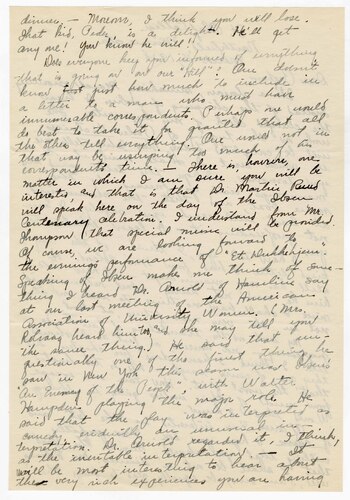 dinner, – Moreom, I think you will lose.
that his, Gade, is a delight. He'll get
any one! You know he will!!
Does everyone keep you informed of everything
that is going on on our "Hill"? One doesn't
know just how much to include in
a letter to a man who must have
innumerable correspondents. Perhaps we would
do best to take it for granted that all
the others tell everything. One would not in
that way be usurping too much of his
correspondents time. – There is, however, one
matter in which I am sure you will be
interested and that is that Dr. Martin Ruud
will speak here on the day of the Ibsen
Centenary celebration. I understand from Mr.
Thompson that special music will be provided.
Of course, we are looking forward to
the evening's performance of "Et Dukkehjem".
Speaking of Ibsen makes me think of some-
thing I heard Dr. Arnold of Hamline say
at our last meeting of the American
Association of University Women. (Mrs.
Rolvaag heard him too, and she may tell you
the same thing.) He said that un-
questionably one of the finest things he
saw in New York this season was Ibsen's
An Enemy of the People", with Walter
Hampden playing the major role. He
said that the play was interpreted as
comedy, evidently an unusual in-
terpretation. Dr. Arnold regarded it, I think,
as the inevitable interpretation. – It
will be most interesting to hear about
the very rich experiences you are having